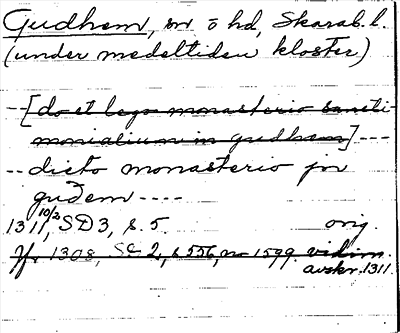 Gudhem, sn o hd, Skarab. l.
(under medeltiden kloster)
--[do et lego monasterio sancti-
monialium in gudham]----
-- dicto monasterio in
gudem ----
1311 10/2, SD 3, s. 5. orig.
Jfr 1308, SD 2, s 556, nr 1599. vidim.
avskr. 1311.